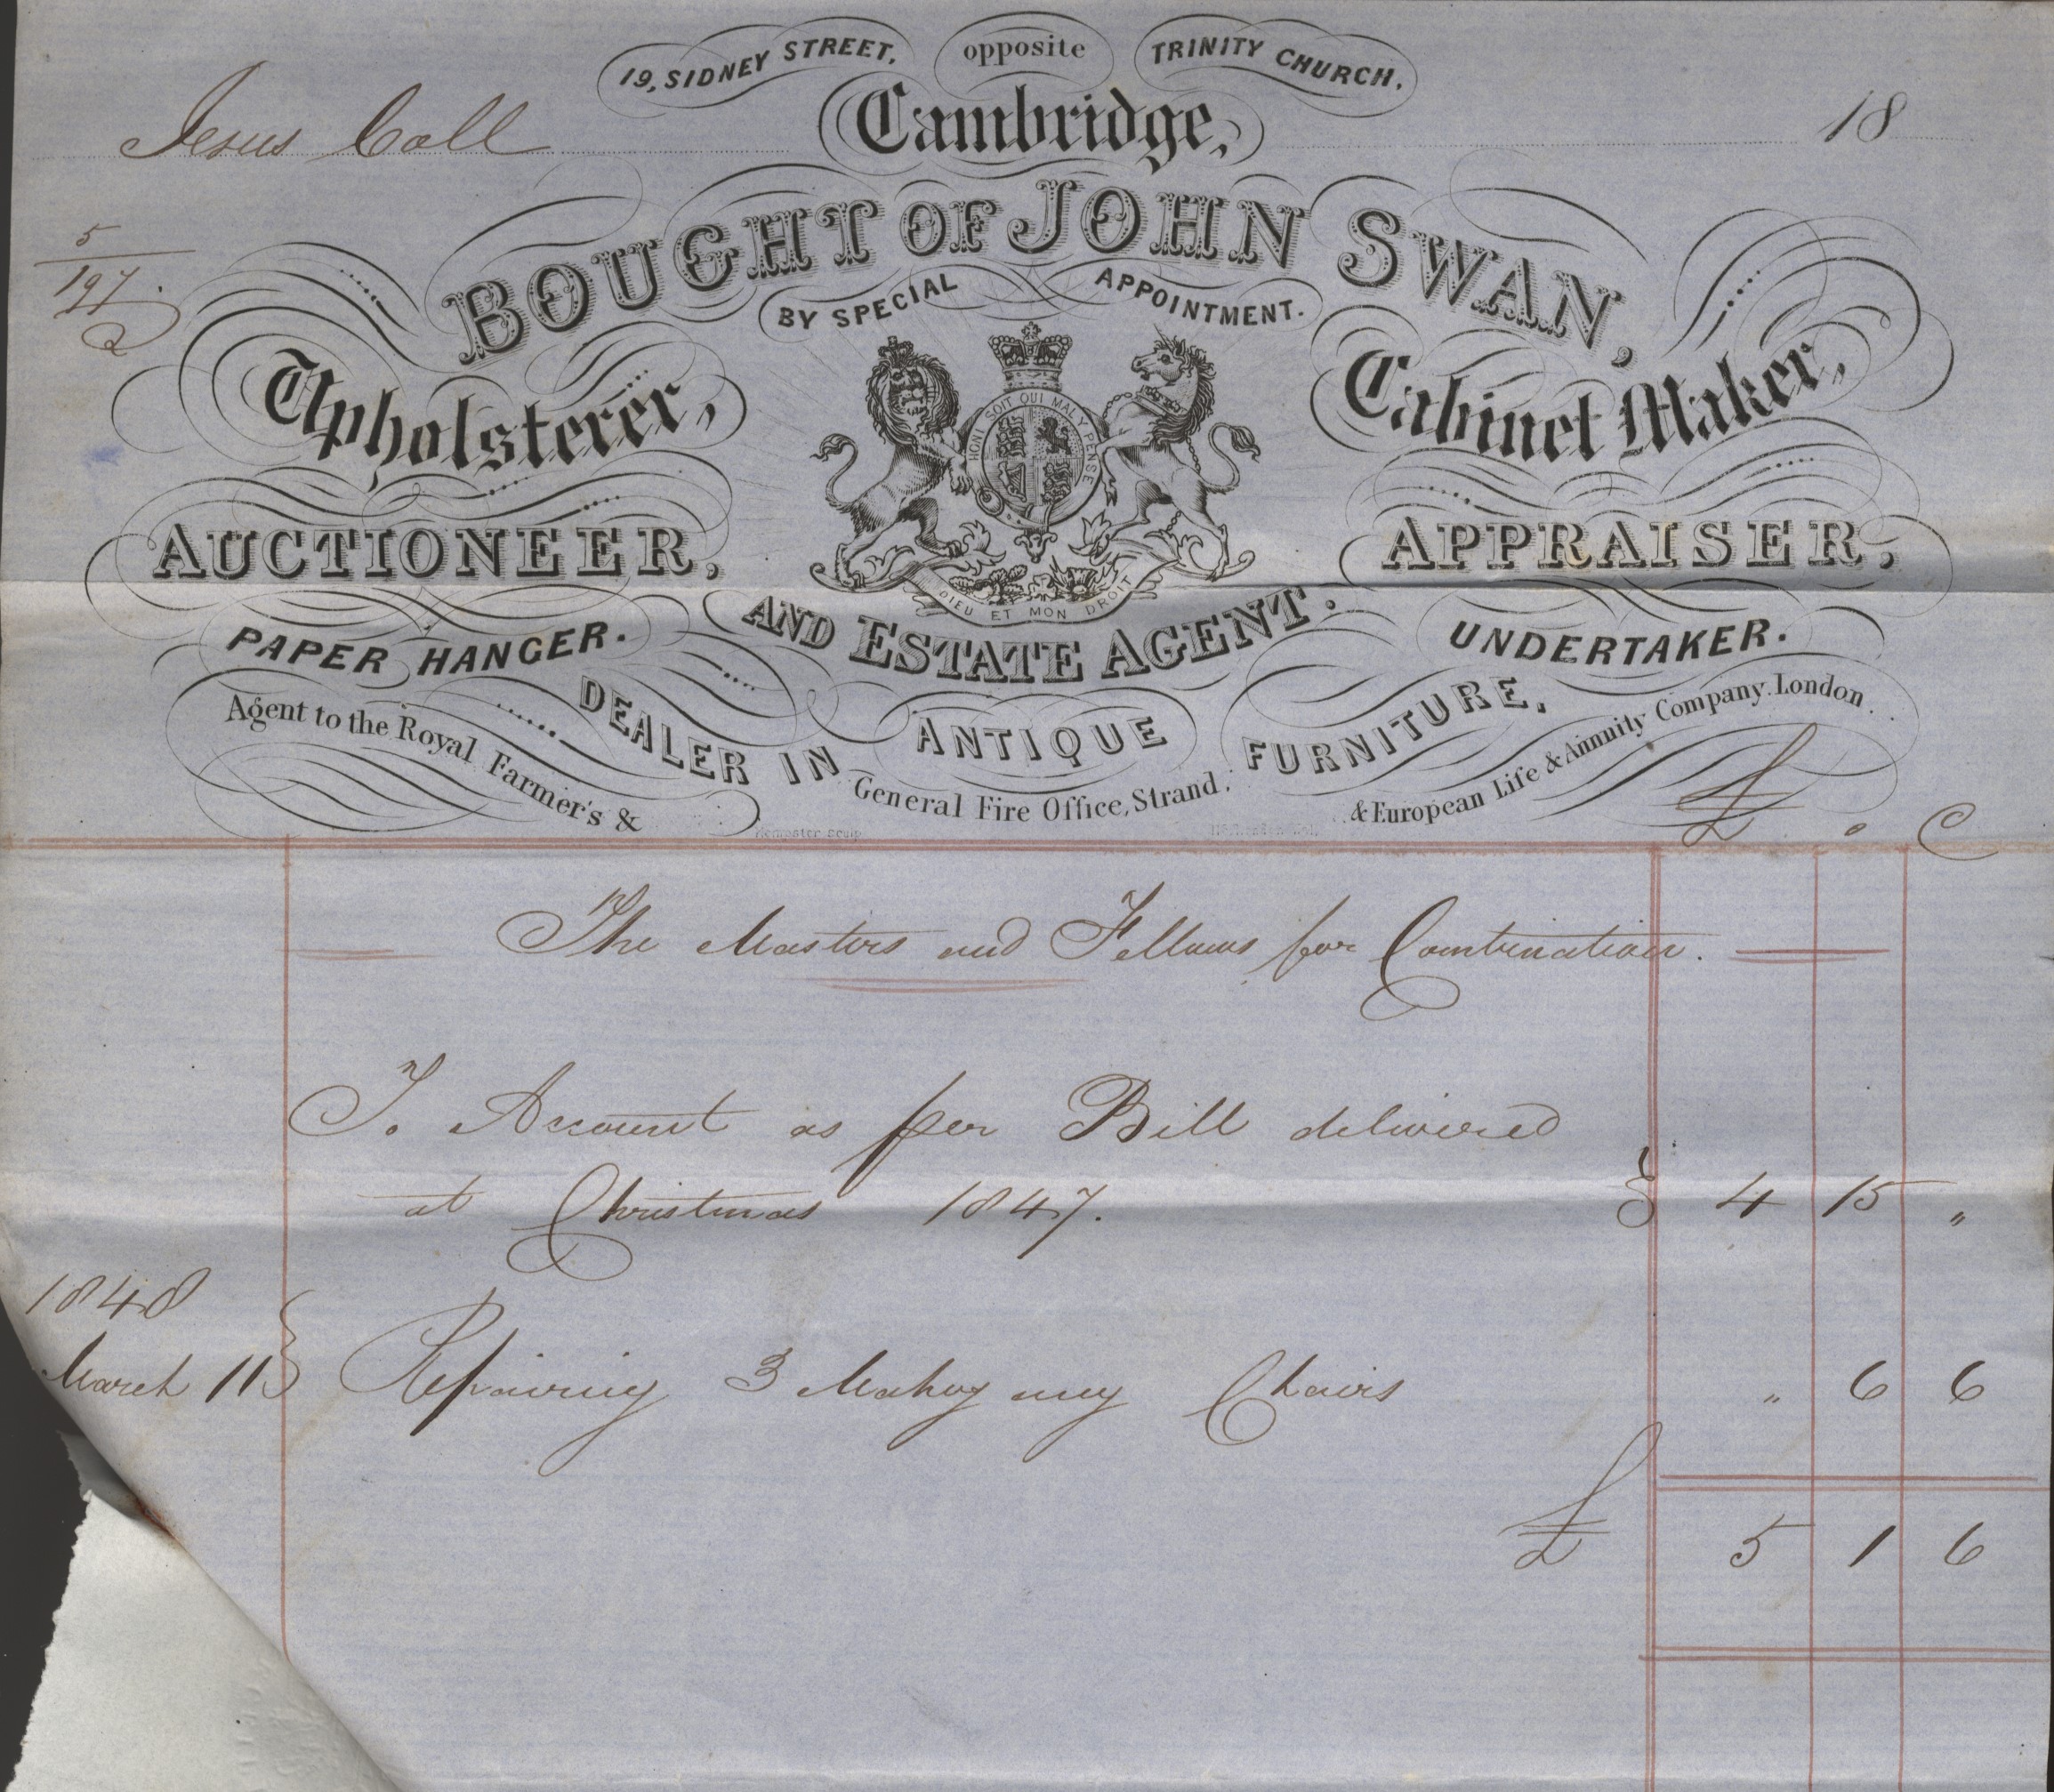 19, SIDNEY STREET, opposite TRINITY CHURCH,
Jesus Coll Cambridge, 18
BOUGHT OF JOHN SWAN,
5
197
BY SPECIAL APPOINTMENT.
Upholsterer, Cabinet Maker,
HONI SOIT QUI MAL Y PENSE
AUCTIONEER, APPRAISER,
DIEU ET MON DROIT
AND ESTATE AGENT.
PAPER HANGER. UNDERTAKER.
DEALER IN ANTIQUE FURNITURE,
Agent to the Royal Farmer's & General Fire Office, Strand, & European Life & Annuity Company. London.
£
The Masters and Fellows for Combination.
To Account as per Bill delivered
at Christmas 1847. } 4 15 "
1848
March 11 } Repairing 3 Mahogany Chairs " 6 6
£ 5 1 6